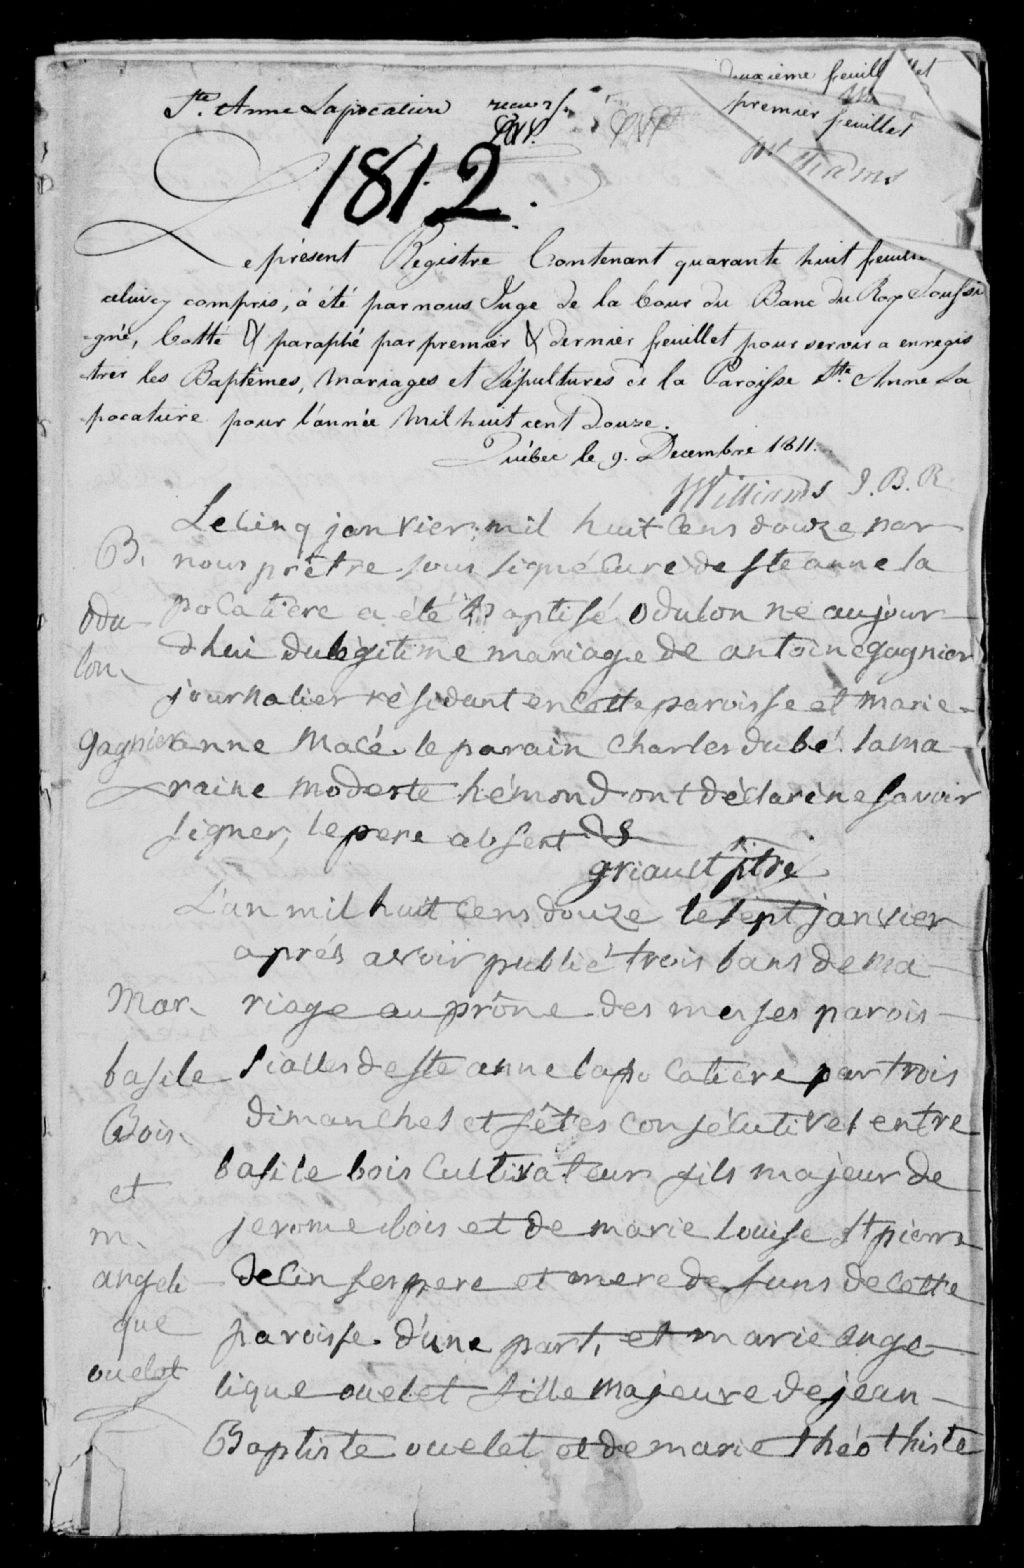 Ste. Anne Lapocatiere
deuxième feuillet
premier feuillet
Williams
1812.
Le présent Registre Contenant quarante huit feuillets
celuicy compris, à été par nous Juge de la Cour du Banc du Roy Soussi
gné, Cotté & paraphé par premier & dernier feuillet pour servir a enregis
trer les Baptêmes, Mariages et Sépultures de la Paroisse Ste. Anne La
pocatiere pour l'année Mil huit cent Douze.
Québec le 9. Decembre 1811.
Williams J. B. R.
Le Cinq janvier mil huit Cens douze par
B. nous prêtre sous signé Curé de ste anne la
Odu- pocatière a été Baptisé Odulon né aujour-
lon d'hui du légitime mariage de antoine gagnier
journalier résidant en Cette paroisse et marie-
gagnier anne Macé. le parain Charles dubé la ma-
raine Modeste hémond ont déclaré ne savoir
signer, le pere absent
griault ptre
L'an mil huit Cens douze le sept janvier
après avoir publié trois bans de ma-
Mar. riage au prône des messes parois-
basile sialles de ste anne la po Catière par trois
Bois dimanches et fêtes Consécutives entre
et basile bois Cultivateur fils majeur de
m. jerome bois et de marie louise st pierre
angeli- de Cin ses pere et mere defuns de Cette
que paroisse d'une part, et marie ange-
ouelet lique ouelet fille majeure de jean-
Baptiste ouelet et de marie théothiste